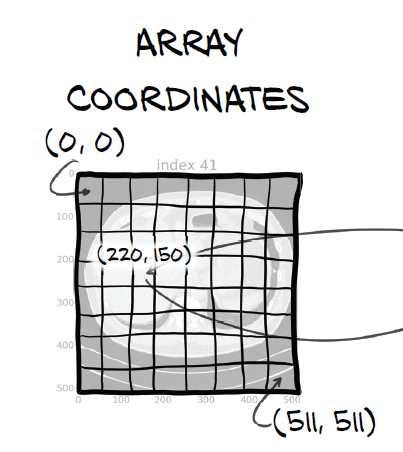 ARRAY
COORDINATES
(0, 0)
index 41
0
100
200
(220, 150)
300
400
500
0 100 200 300 400 500
(511, 511)